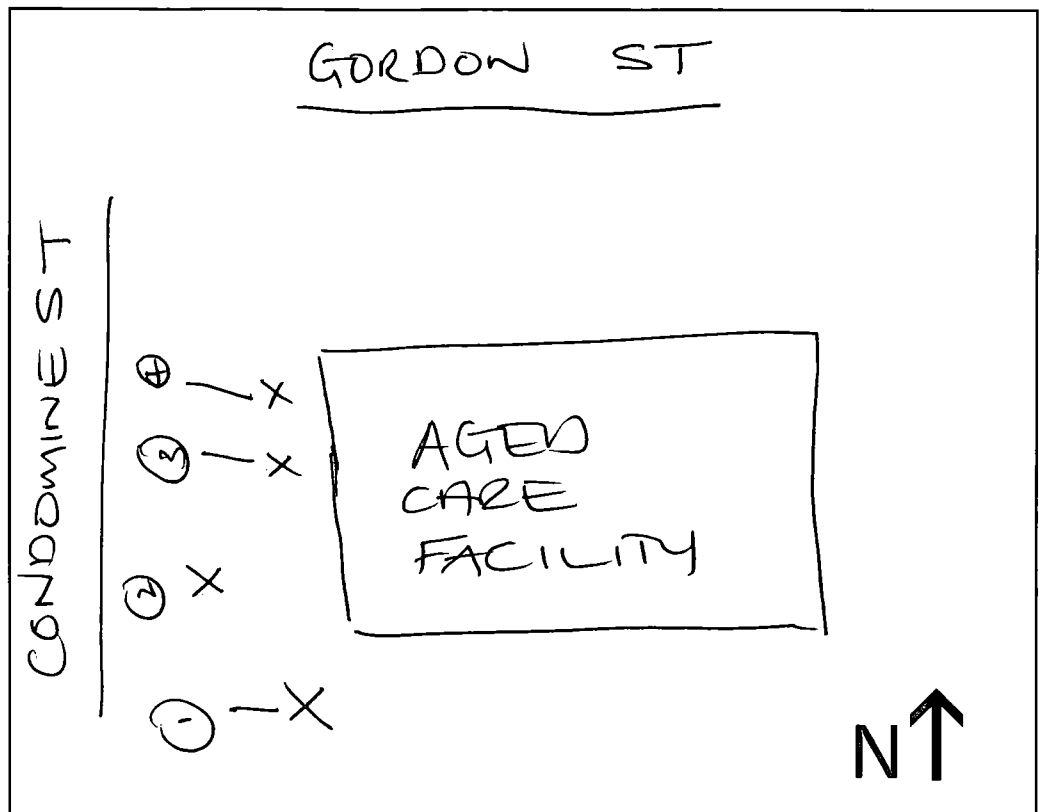 GORDON ST
CONDOMINE ST
4 — X
3 — X
2 X
1 — X
AGED
CARE
FACILITY
N